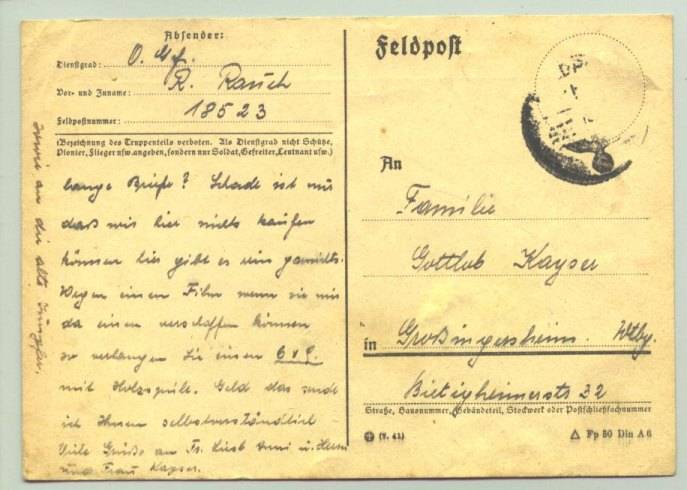 Absender:
Dienstgrad: O. Gf.
Vor- und Zuname: R. Rauch
Feldpostnummer: 18523
(Bezeichnung des Truppenteils verboten. Als Dienstgrad nicht Schütze,
Pionier, Flieger usw. angeben, sondern nur Soldat, Gefreiter, Leutnant usw.)
lange Briefe? Schade ist nur
daß wir hier nichts kaufen
können hier gibt es rein garnichts.
Wegen einen Film wenn sie mir
da einen verschaffen können
so verlangen Sie einen 6x9.
mit Holzspule. Geld das sende
ich Ihnen selbstverständlich
Viele Grüße an Fr. u.
und Frau Kayser.
sowie an die alte
Feldpost
An
Familie
Gottlob Kayser
in Großingersheim. Wttbg.
Bietigheimerstr 32
Straße, Hausnummer, Gebäudeteil, Stockwerk oder Postschließfachnummer
(V. 41)
Fp 50 Din A 6